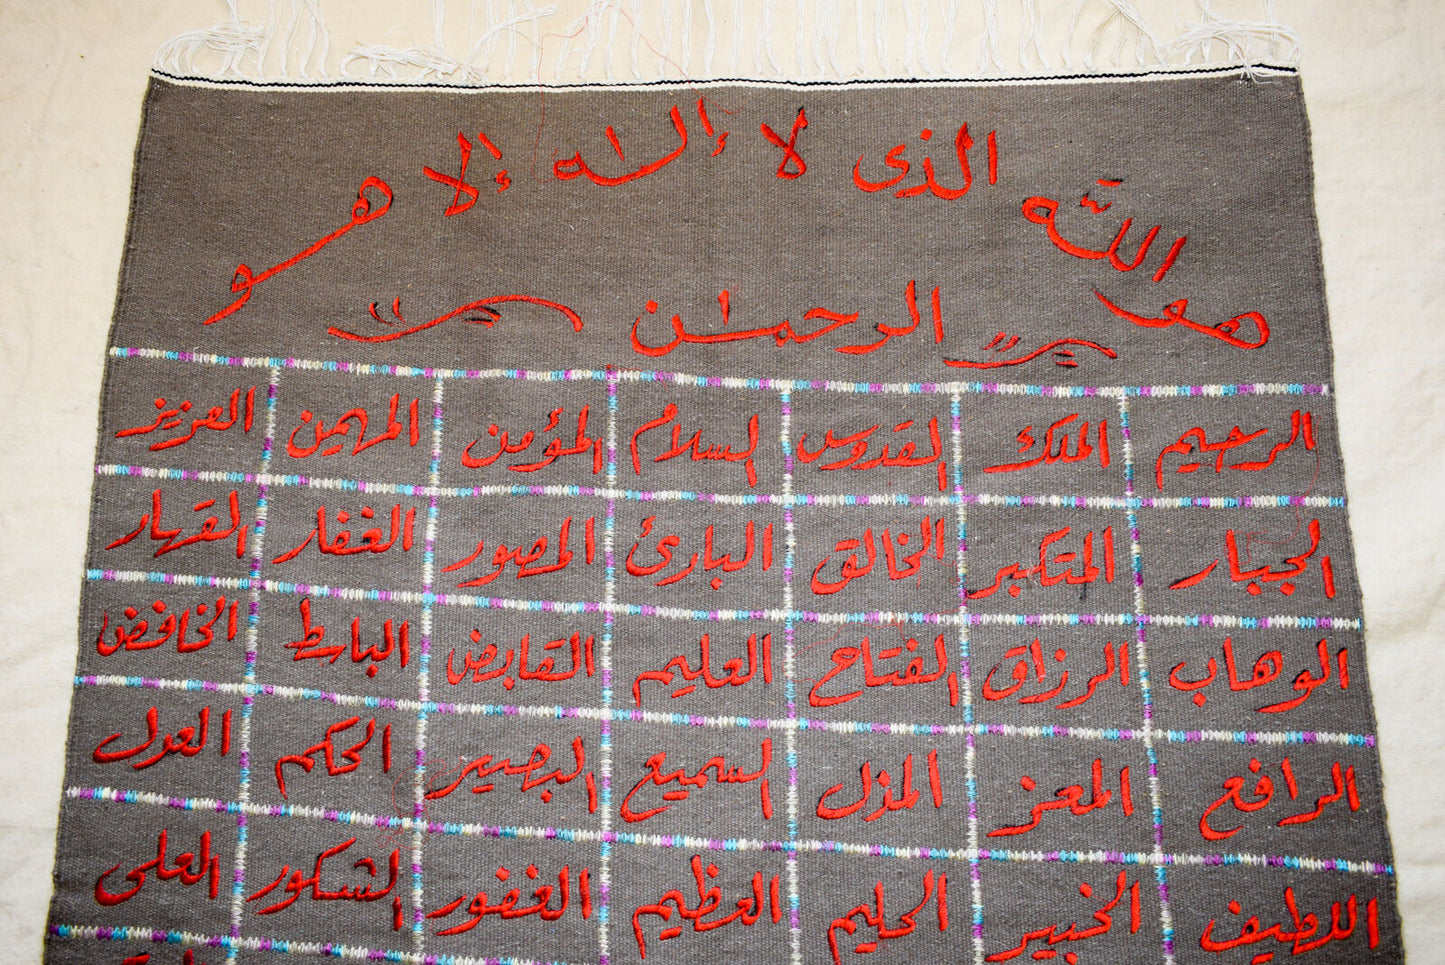 هو اللّه الذى لا إلٰه إلا هو
الرحمٰن
الرحيم الملك القدوس السلام المؤمن المهمن العزيز
الجبار المتكبر الخالق البارئ المصور الغفار القهار
الوهاب الرزاق الفتاح العليم القابض الباسط الخافض
الرافع المعز المذل السميع البصير الحكم العدل
اللطيف الخبير الحليم العظيم الغفور الشكور العلى